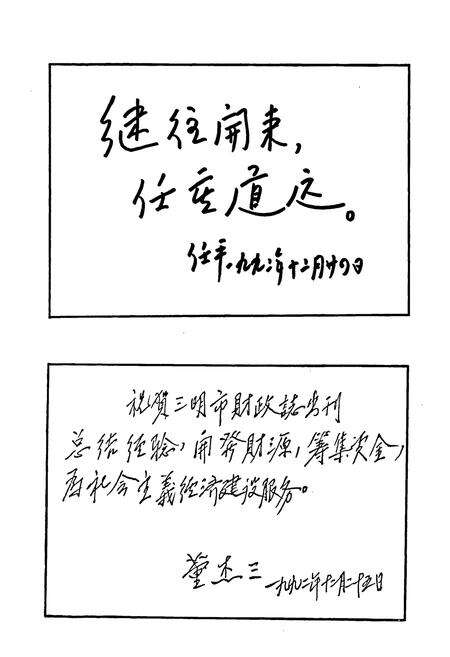 继往開来，
任重道远。
任平.一九九二年十二月廿四日
祝贺三明市财政誌出刊
总结经验，開發财源，筹集资金，
为社会主義经济建设服务。
董杰三 一九九二年十二月二十五日